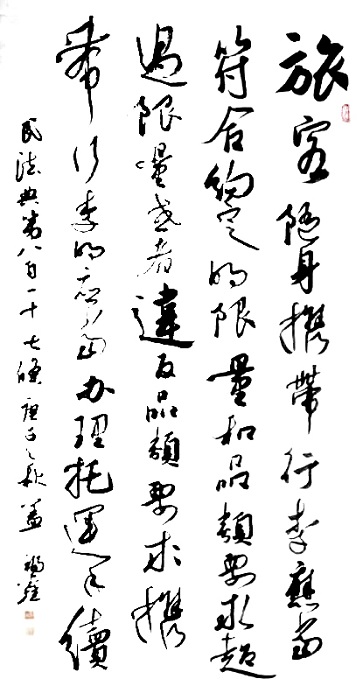 旅客随身攜帶行李應當
符合约定的限量和品類要求超
過限量或者違反品類要求攜
帶行李的應當办理托運手續
民法典第八百一十七條 庚子之秋